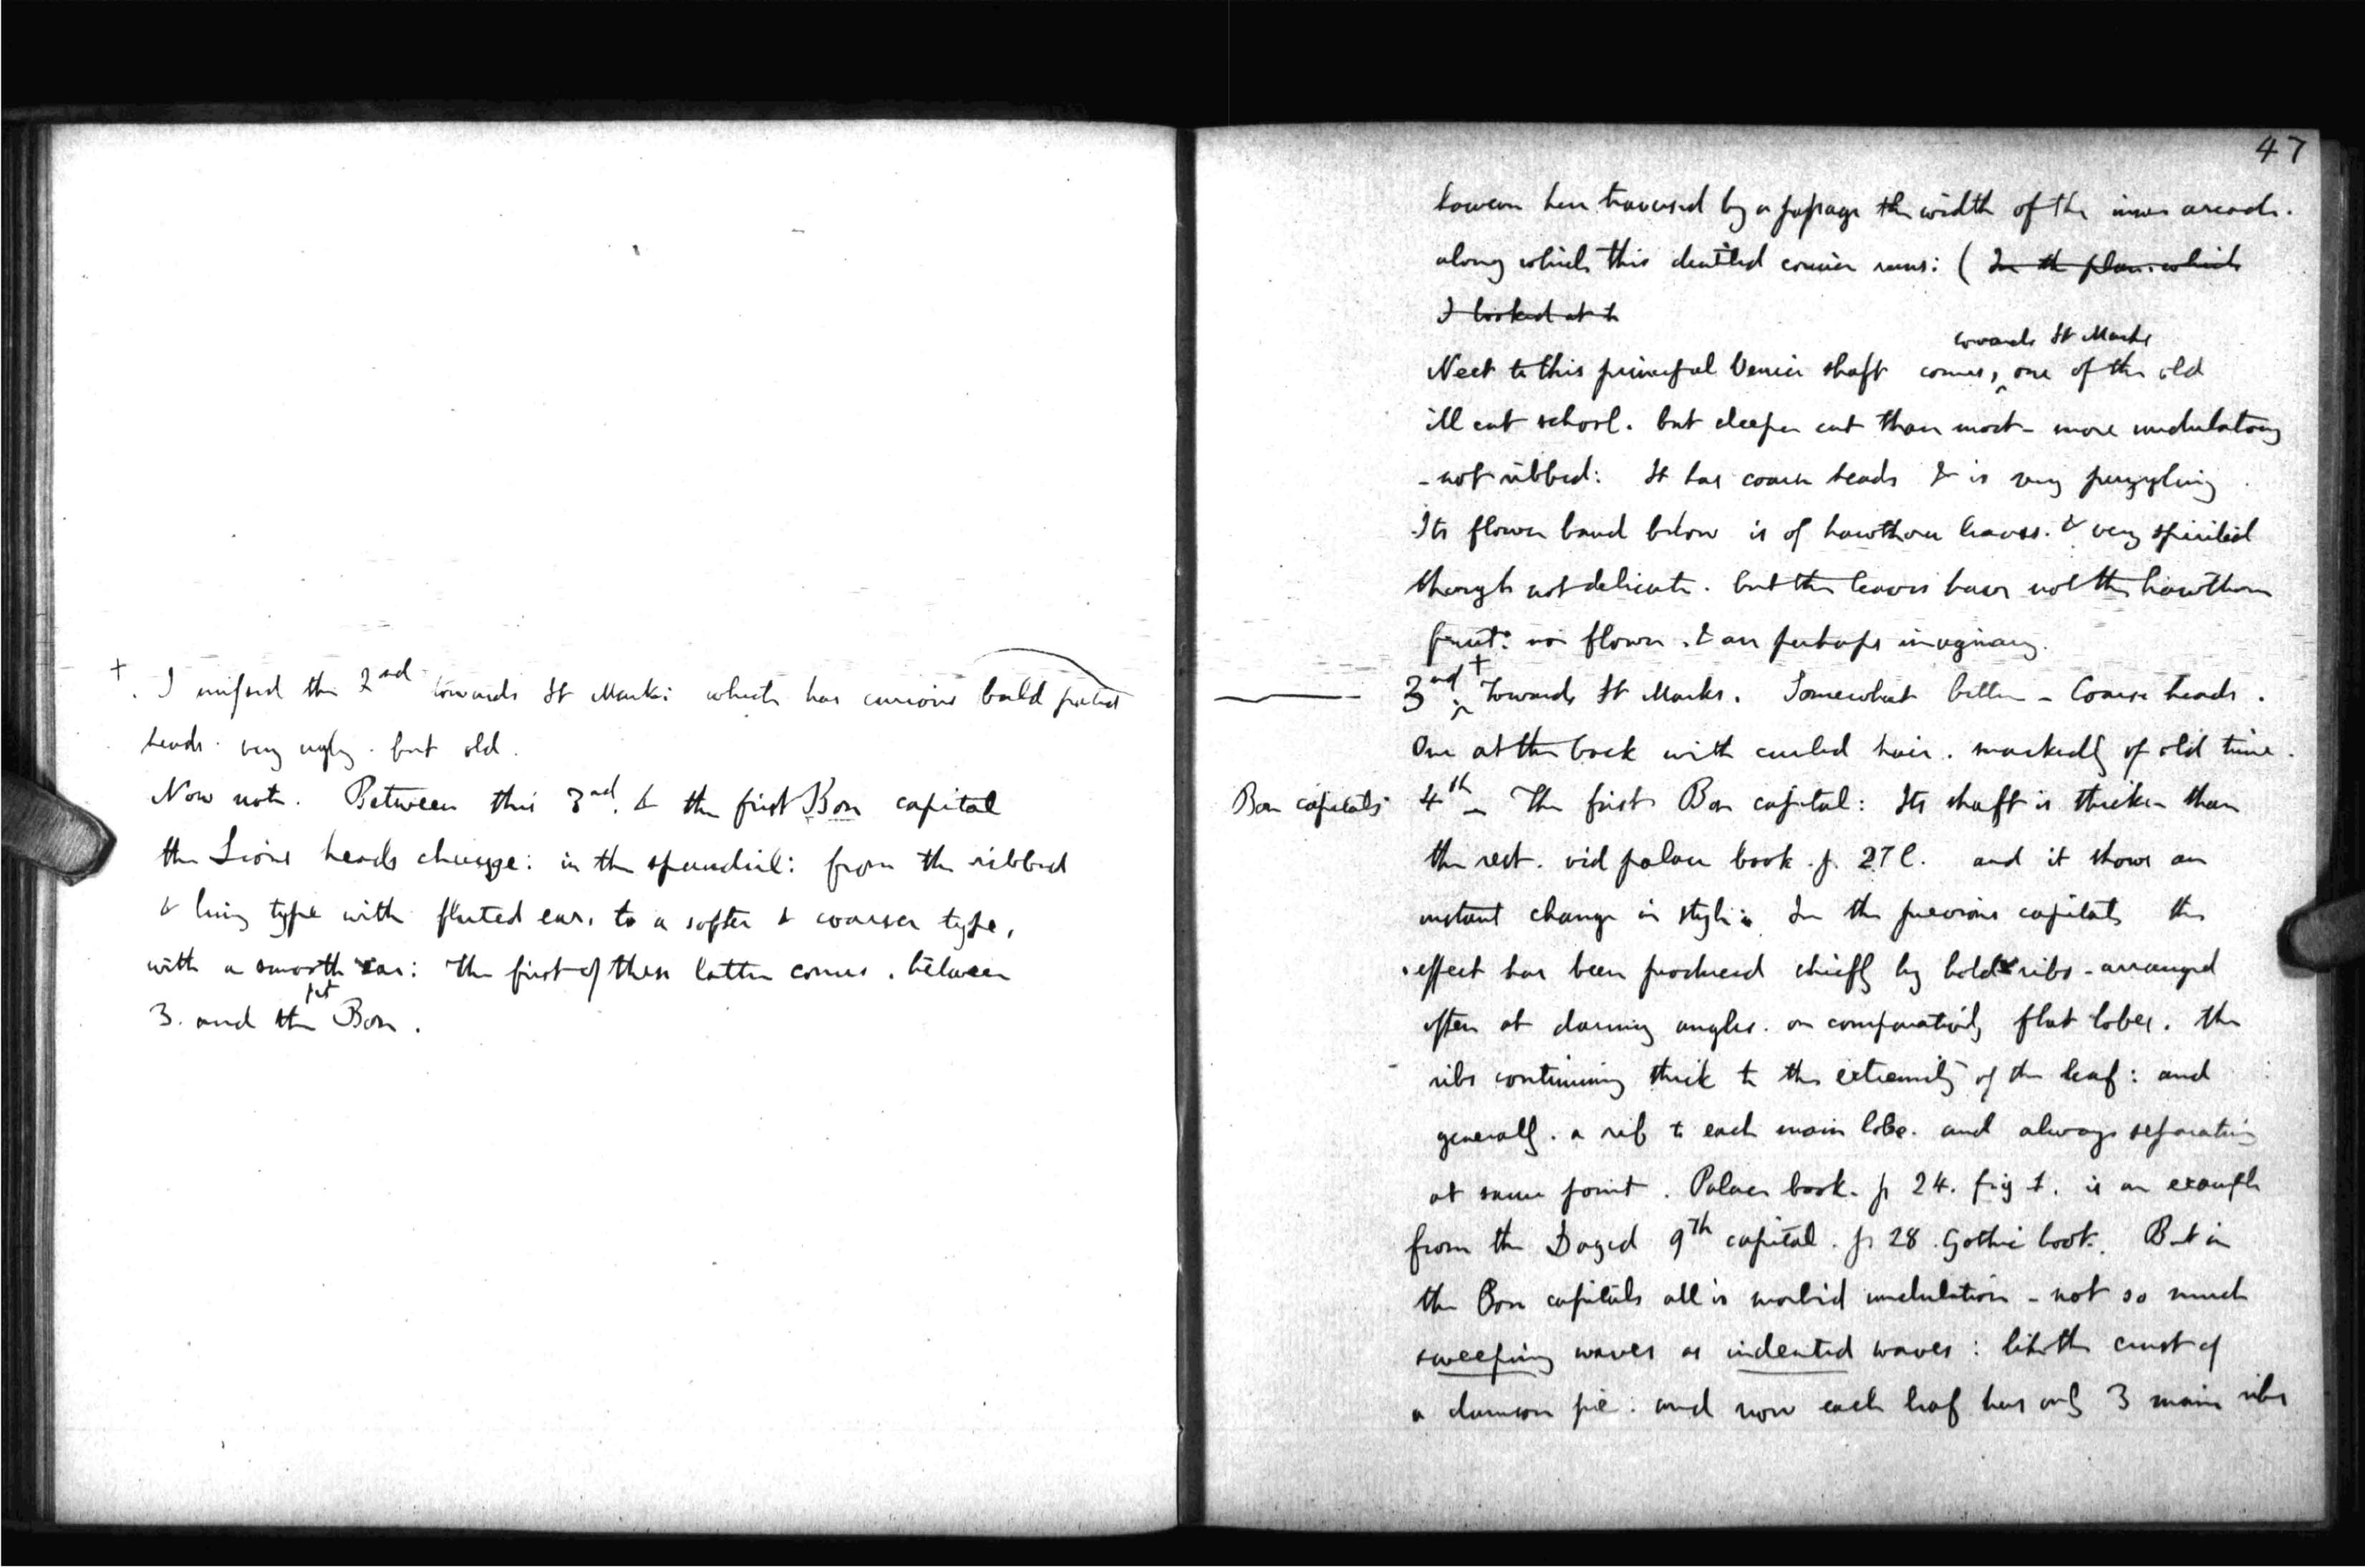 +. I missed the 2nd towards St Marks: which has curious bald
heads. very ugly. but old.
Now note. Between this 3rd. & the first Bon capital
the Lions heads change: in the spandril: from the ribbed
& living type with fluted ears, to a softer & coarser type,
with a smooth ear: The first of these latter comes. between
3. and the 1st Bon.
47
however here traversed by a passage the width of the inner arcade.
along which this dentiled cornice runs: ( In the plan which
I looked at to
towards St Marks
Next to this principal Venice shaft comes, ^ one of the old
ill cut school. but deeper cut than most - more undulatory
- not ribbed: It has coarse heads & is very puzzling
Its flower band below is of hawthorn leaves. & very spirited
though not delicate. but the leaves have not the hawthorn
fruit. nor flower. & are perhaps imaginary.
3rd + Towards St Marks. Somewhat better - Coarse heads.
One at the back with curled hair. markedly of old time.
Bon capitals
4th - The first Bon capital: Its shaft is thicker than
the rest. vid palace book. p. 27 l. and it shows an
instant change in style: In the previous capitals the
effect has been produced chiefly by bold ribs - arranged
often at daring angles. on comparatively flat lobes. the
ribs continuing thick to the extremity of the leaf: and
generally. a rib to each main lobe. and always separating
at same point. Palace book. p 24. fig 1. is an example
from the Doges 9th capital. p 28 Gothic book. But in
the Bon capitals all is morbid undulation - not so much
sweeping waves as indented waves: like the crust of
a damson pie: and now each leaf has only 3 main ribs